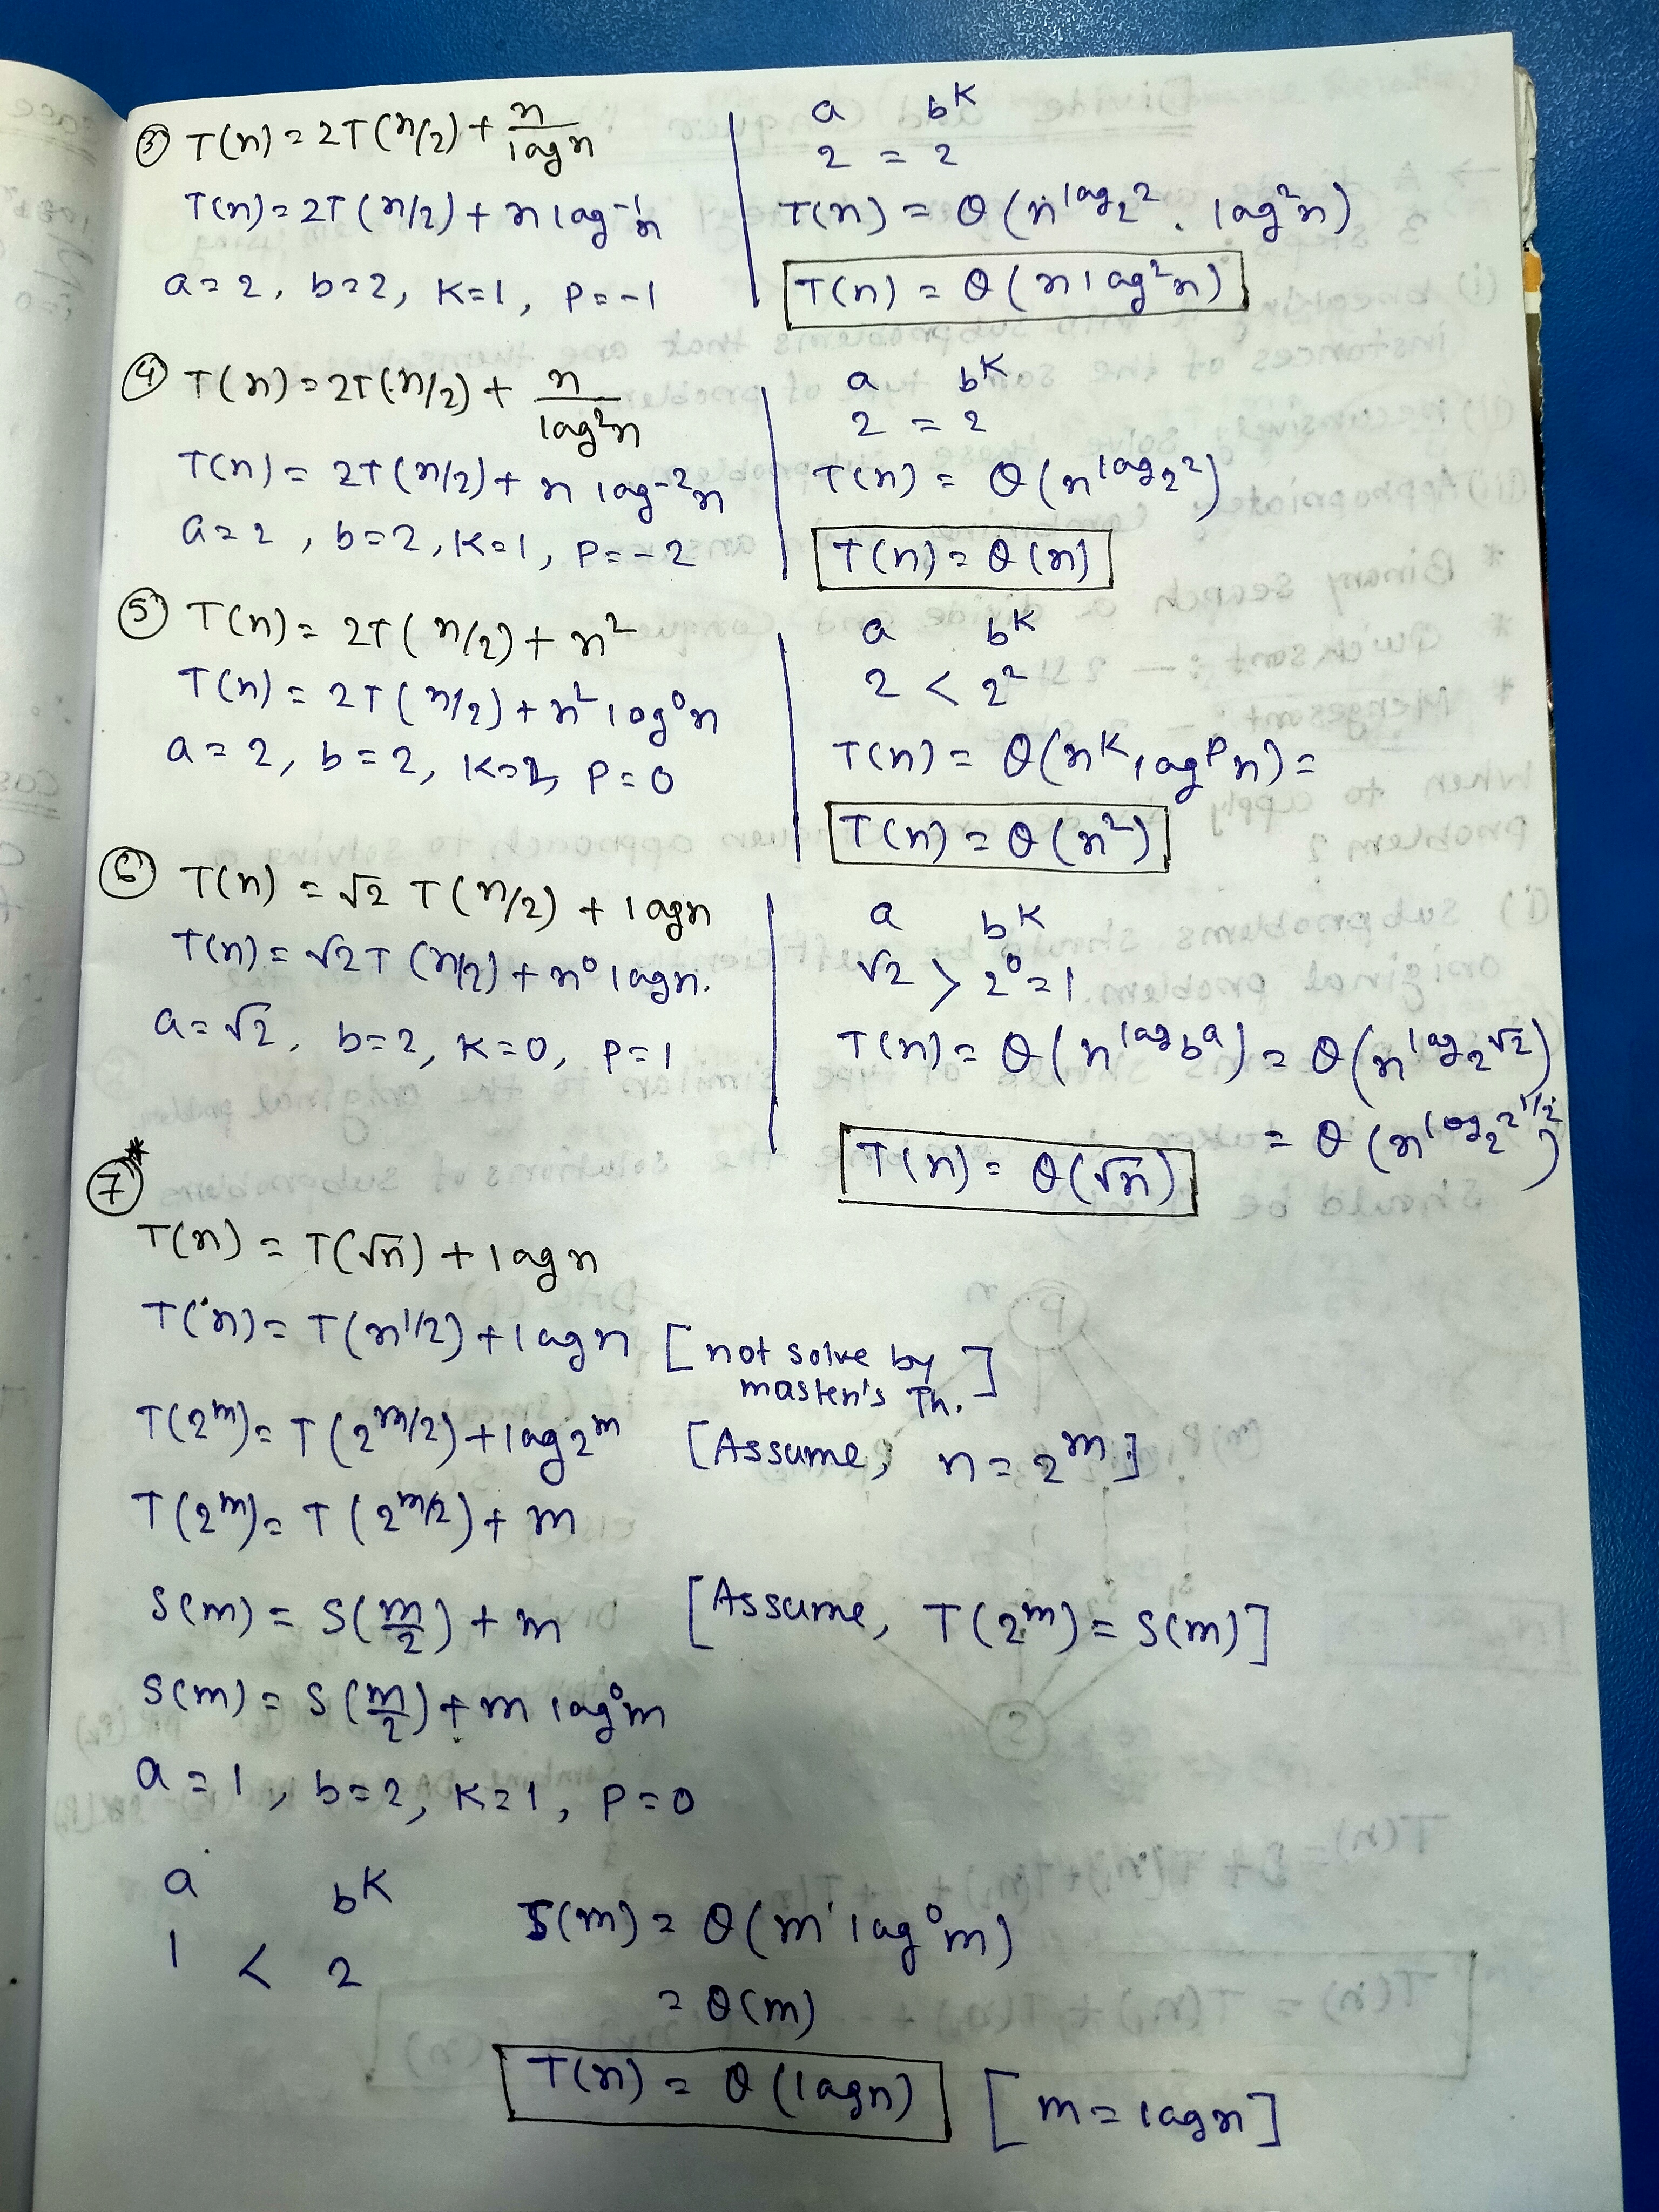 ③ T(n) = 2T(n/2) + n/logn
T(n) = 2T(n/2) + n log⁻¹n
a = 2, b = 2, K = 1, P = -1
a b^K
2 = 2
T(n) = θ(n^log₂2 . log²n)
T(n) = θ(n log²n)
④ T(n) = 2T(n/2) + n/log²n
T(n) = 2T(n/2) + n log⁻²n
a = 2, b = 2, K = 1, P = -2
a b^K
2 = 2
T(n) = θ(n^log₂2)
T(n) = θ(n)
⑤ T(n) = 2T(n/2) + n²
T(n) = 2T(n/2) + n² log⁰n
a = 2, b = 2, K = 2, P = 0
a b^K
2 < 2²
T(n) = θ(n^K log^P n) =
T(n) = θ(n²)
⑥ T(n) = √2 T(n/2) + logn
T(n) = √2T(n/2) + n⁰ logn.
a = √2, b = 2, K = 0, P = 1
a b^K
√2 > 2⁰ = 1
T(n) = θ(n^log_b a) = θ(n^log₂√2)
= θ(n^log₂2^1/2)
T(n) = θ(√n)
⑦*
T(n) = T(√n) + logn
T(n) = T(n^1/2) + logn [not solve by master's Th.]
T(2^m) = T(2^m/2) + log2^m [Assume, n = 2^m]
T(2^m) = T(2^m/2) + m
S(m) = S(m/2) + m [Assume, T(2^m) = S(m)]
S(m) = S(m/2) + m log⁰m
a = 1, b = 2, K = 1, P = 0
a b^K
1 < 2
S(m) = θ(m¹ log⁰m)
= θ(m)
T(n) = θ(logn) [m = logn]